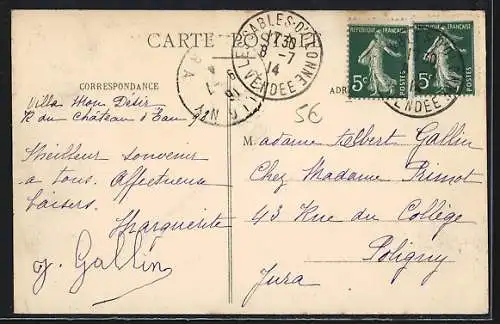 CARTE POSTALE
LES SABLES-D'OLONNE
17 30
8-7
14
VENDÉE
RÉPUBLIQUE FRANÇAISE
5c
POSTES
RÉPUBLIQUE FRANÇAISE
5c
POSTES
VENDÉE
POLIGNY
CORRESPONDANCE
ADR
5€
Villa Mon Désir
R du Château d'Eau
Meilleur souvenir
à tous. Affectueux
baisers.
Marguerite
J. Gallin
Madame Albert Gallin
Chez Madame
43 Rue du Collège
Poligny
Jura